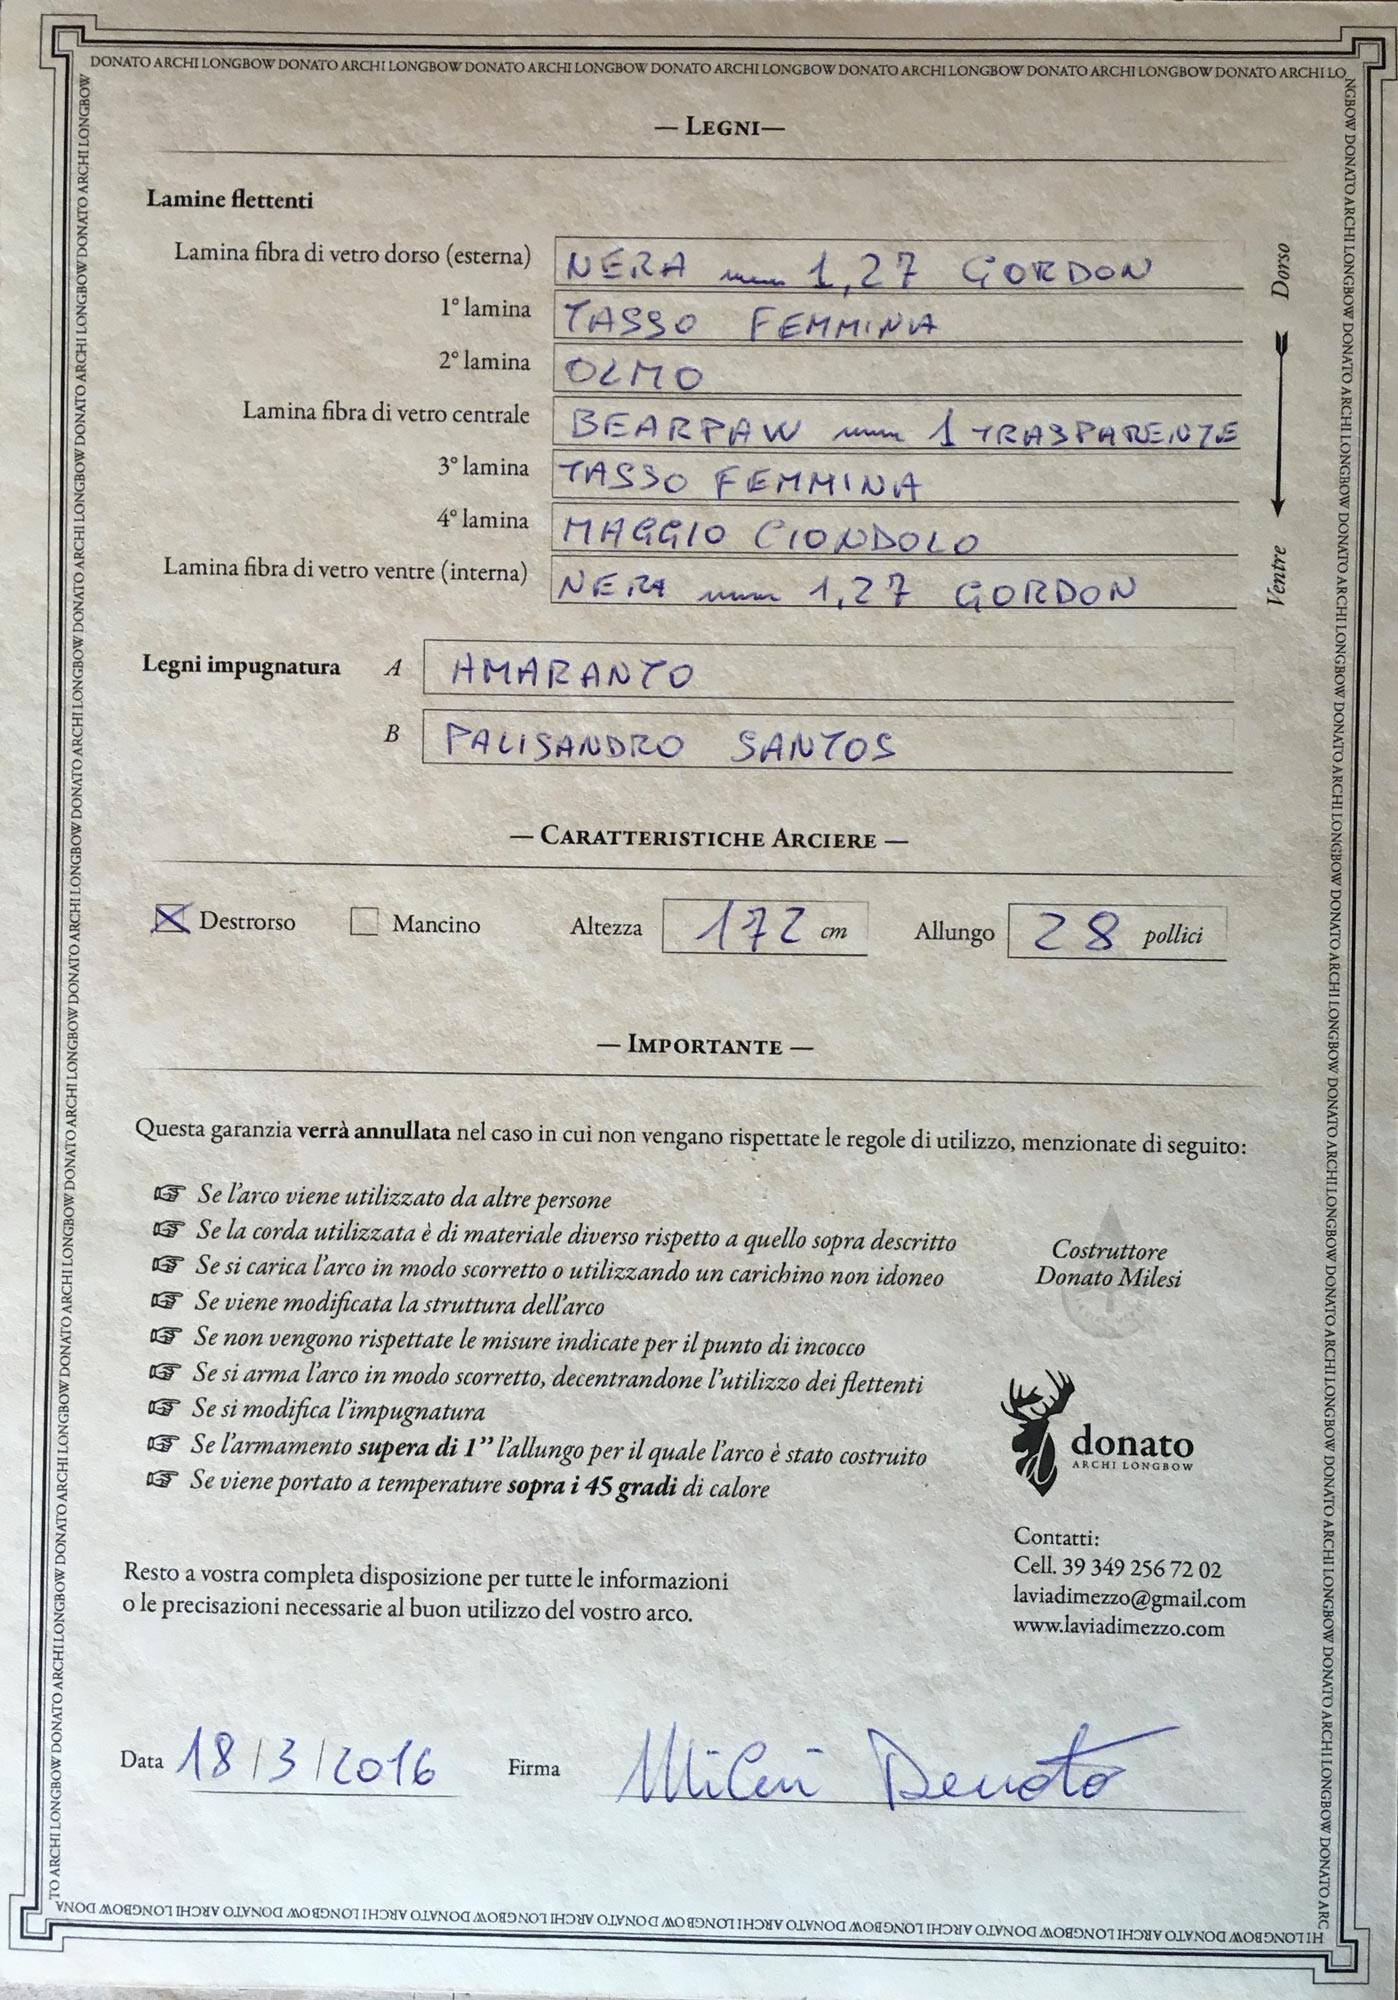 DONATO ARCHI LONGBOW DONATO ARCHI LONGBOW DONATO ARCHI LONGBOW DONATO ARCHI LONGBOW DONATO ARCHI LONGBOW DONATO ARCHI LONGBOW DONATO ARCHI LO
— LEGNI—
Lamine flettenti
Lamina fibra di vetro dorso (esterna) NERA mm 1,27 GORDON
1° lamina TASSO FEMMINA
2° lamina OLMO
Lamina fibra di vetro centrale BEARPAW mm 1 TRASPARENTE
3° lamina TASSO FEMMINA
4° lamina MAGGIO CIONDOLO
Lamina fibra di vetro ventre (interna) NERA mm 1,27 GORDON
Dorso
Ventre
Legni impugnatura A AMARANTO
B PALISANDRO SANTOS
— CARATTERISTICHE ARCIERE —
Destrorso Mancino Altezza 172 cm Allungo 28 pollici
— IMPORTANTE —
Questa garanzia verrà annullata nel caso in cui non vengano rispettate le regole di utilizzo, menzionate di seguito:
Se l'arco viene utilizzato da altre persone
Se la corda utilizzata è di materiale diverso rispetto a quello sopra descritto
Se si carica l'arco in modo scorretto o utilizzando un carichino non idoneo
Se viene modificata la struttura dell'arco
Se non vengono rispettate le misure indicate per il punto di incocco
Se si arma l'arco in modo scorretto, decentrandone l'utilizzo dei flettenti
Se si modifica l'impugnatura
Se l'armamento supera di 1” l'allungo per il quale l'arco è stato costruito
Se viene portato a temperature sopra i 45 gradi di calore
Costruttore
Donato Milesi
donato
ARCHI LONGBOW
Contatti:
Cell. 39 349 256 72 02
laviadimezzo@gmail.com
www.laviadimezzo.com
Resto a vostra completa disposizione per tutte le informazioni
o le precisazioni necessarie al buon utilizzo del vostro arco.
Data 18/3/2016 Firma Milesi Donato